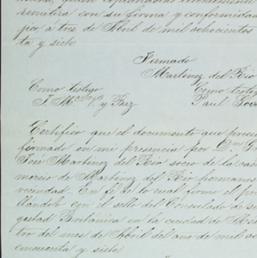 remitera con su forma y conformidad
por, a tres de Abril de mil ochocientos
ta y siete
Firmado
Martinez del Rio
Como testigo
Como testigo
y Paz
Certifico que el documento que
firmado en mi presencia por Dn
José Martinez del Rio socio de la casa
mercio de Martinez del Rio hermanos
vecindad. En fé de lo cual firmo el
llandolo con el sello del Consulado de
gestad Britanica en la ciudad de
tro del mes de Abril del año de mil
cincuenta y siete